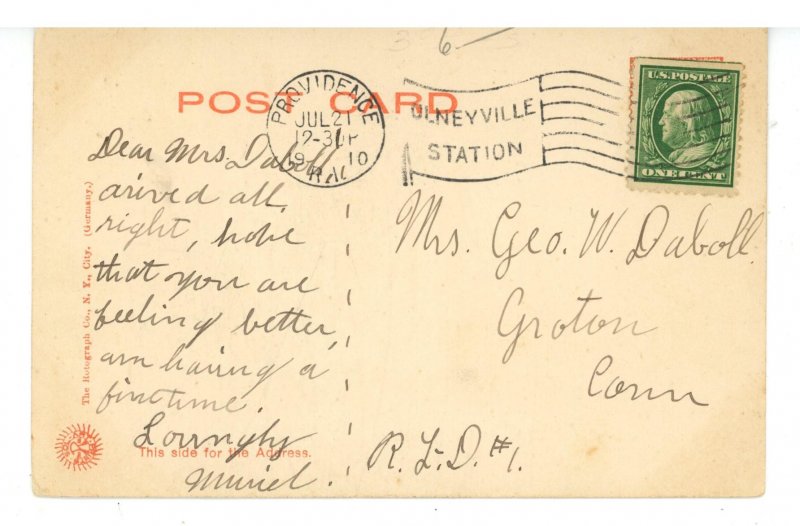 6
POST CARD
PROVIDENCE
JUL 21
12-30P
19 10
R.I.
OLNEYVILLE
STATION
U.S. POSTAGE
ONE CENT
Dear Mrs. Daboll
arived all
right, hope
that you are
feeling better,
am having a
fine time.
Lovingly
Muriel.
Mrs. Geo. W. Daboll.
Groton
Conn
R.F.D. #1.
The Rotograph Co., N. Y., City. (Germany.)
This side for the Address.